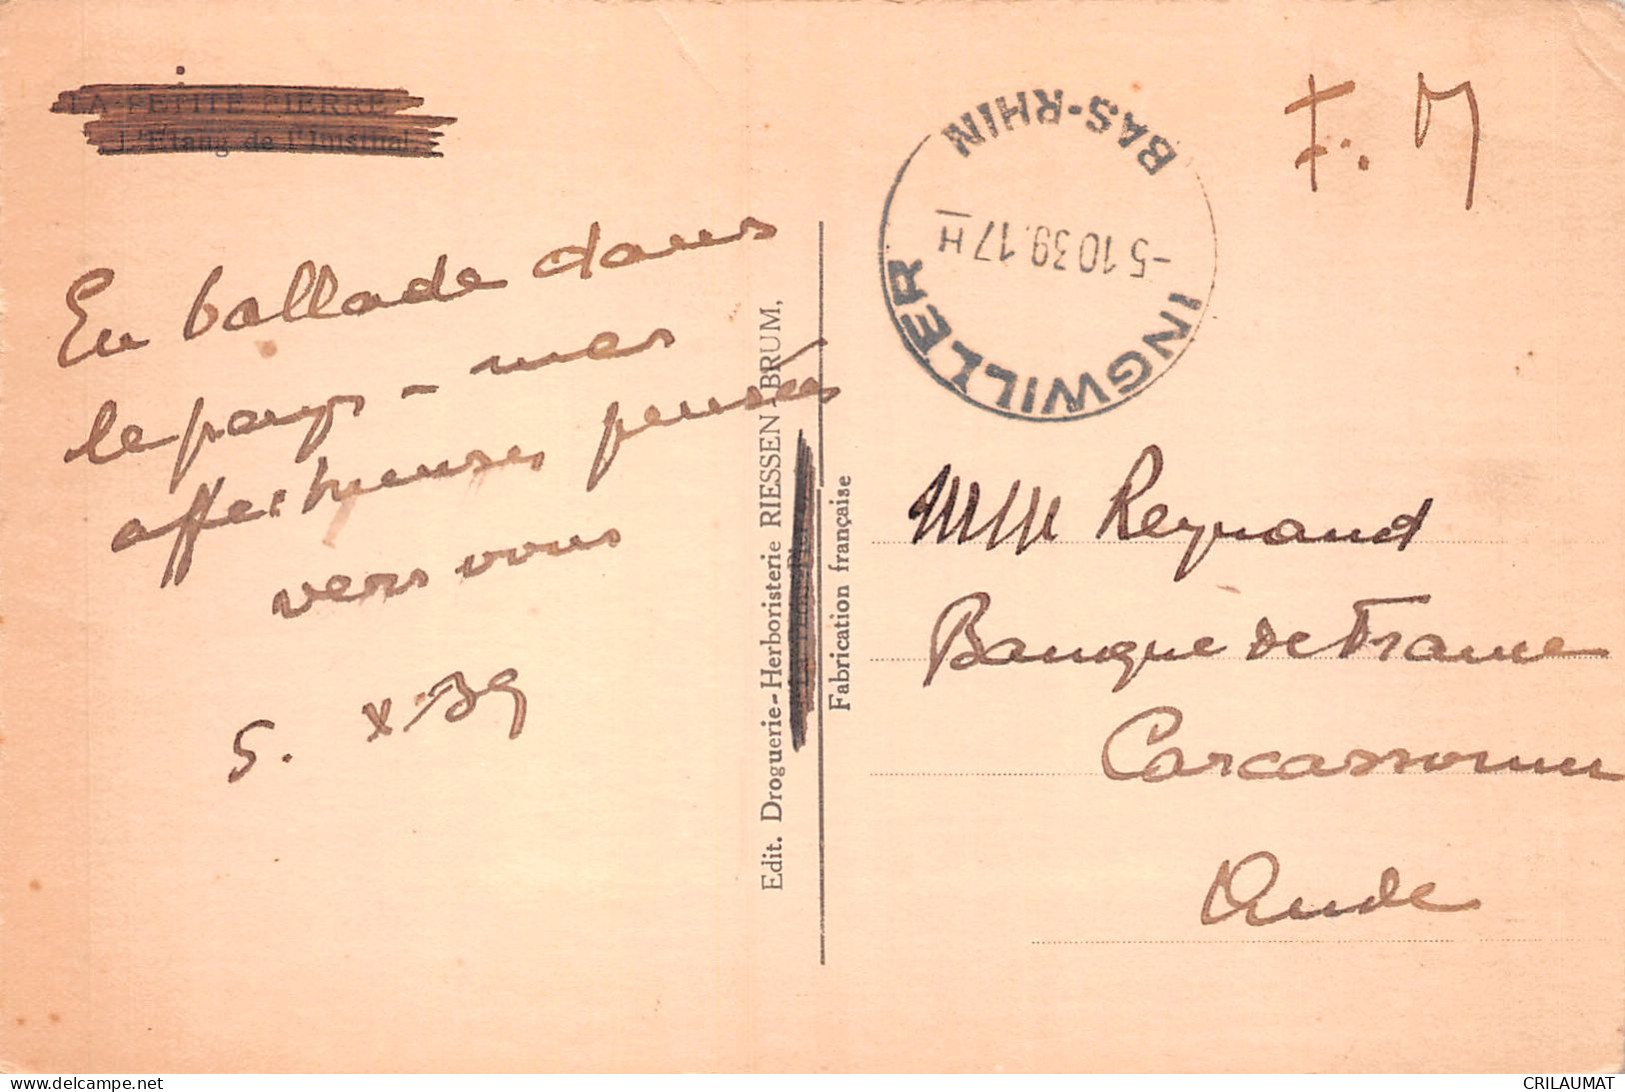 LA PETITE PIERRE
L'Etang de l'Imsthal
En ballade dans
le pays - mes
affectueuses pensées
vers vous
5. X 39
Edit. Droguerie-Herboristerie RIESSEN-BRUM,
Fabrication française
INGWILLER
-5 10 39. 17 H
BAS-RHIN
F. M
Mlle Reynaud
Banque de France
Carcassonne
Aude
CRILAUMAT